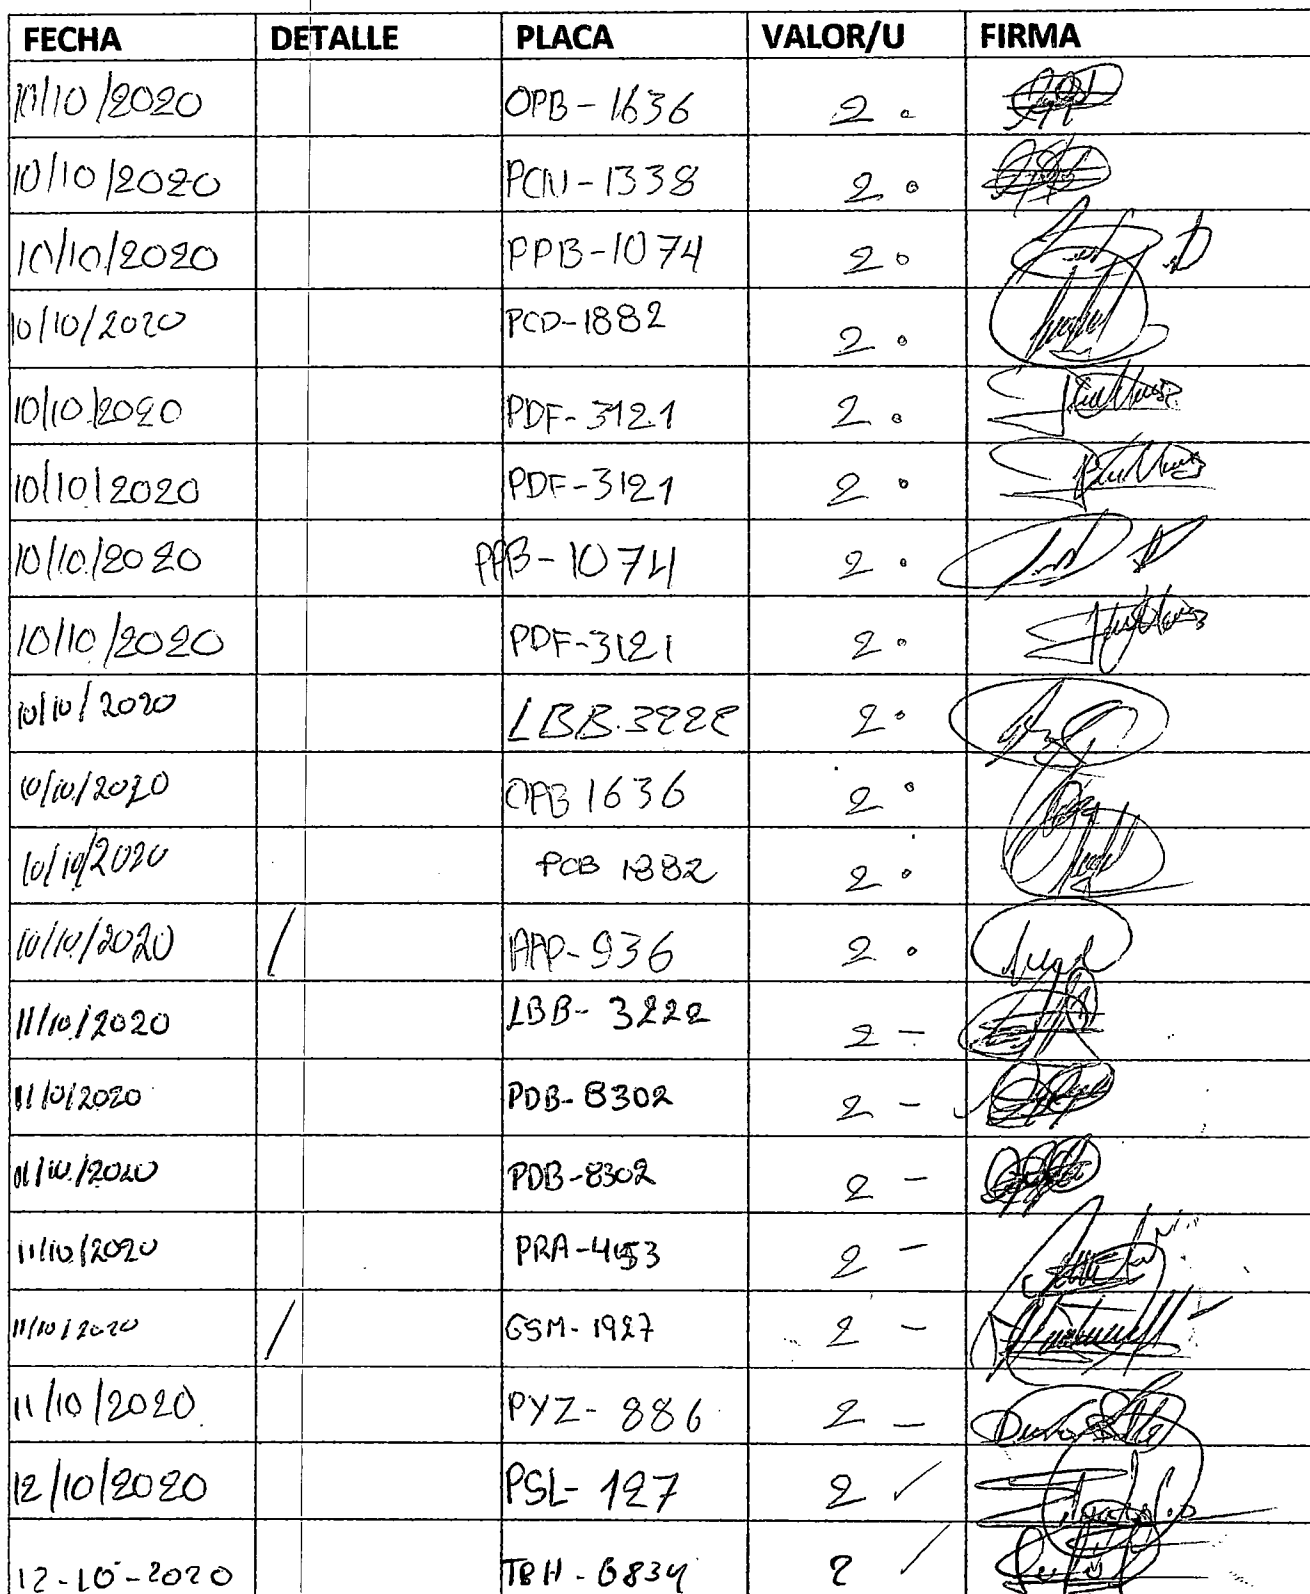 FECHA DETALLE PLACA VALOR/U FIRMA
10/10/2020 OPB-1636 2.
10/10/2020 PCN-1338 2.
10/10/2020 PPB-1074 2.
10/10/2020 PCD-1882 2.
10/10/2020 PDF-3121 2.
10/10/2020 PDF-3121 2.
10/10/2020 PPB-1074 2.
10/10/2020 PDF-3121 2.
10/10/2020 LBB-3222 2.
10/10/2020 OPB 1636 2.
10/10/2020 PCB 1882 2.
10/10/2020 / AAP-936 2.
11/10/2020 LBB-3222 2 -
11/10/2020 PDB-8302 2 -
11/10/2020 PDB-8302 2 -
11/10/2020 2 -
11/10/2020 / GSM-1927 2 -
11/10/2020 PYZ-886 2 -
12/10/2020 PSL-127 2 ✓
12-10-2020 2 ✓